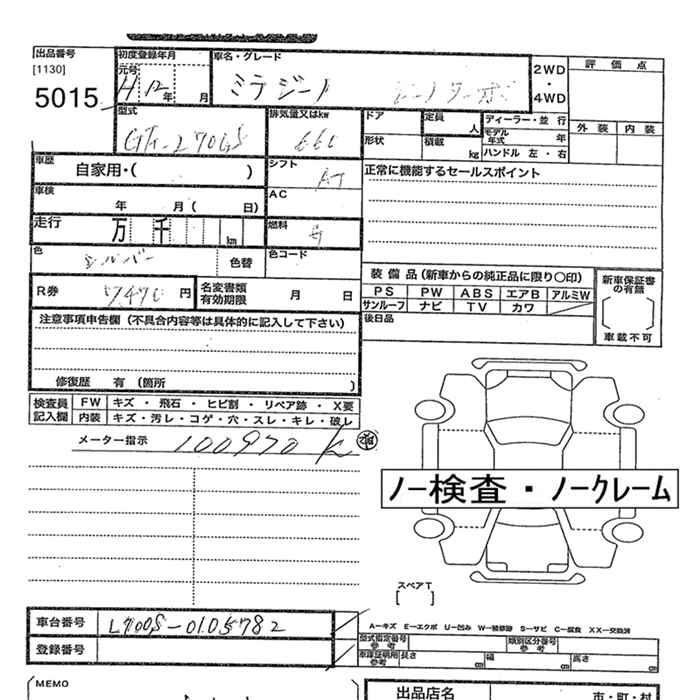 出品番号
[1130]
5015
初度登録年月
元号
H 12 年 月
車名・グレード
ミラジーノ ミニターボ
2WD
・
4WD
評価点
外装 内装
型式
GF-L700S
排気量又はkw
660
ドア
定員 人
形状
積載 kg
ディーラー・並行
モデル年式 年
ハンドル 左・右
車歴
自家用・( )
シフト
AT
正常に機能するセールスポイント
車検
年 月( 日)
AC
走行
万 千 km
燃料
色
シルバー
色替
色コード
R券
7470 円
名変書類有効期限 月 日
装備品(新車からの純正品に限り〇印)
PS PW ABS エアB アルミW
サンルーフ ナビ TV カワ
後日品
新車保証書の有無
車載不可
注意事項申告欄(不具合内容等は具体的に記入して下さい)
修復歴 有(箇所 )
検査員記入欄
FW キズ・飛石・ヒビ割・リペア跡・X要
内装 キズ・汚レ・コゲ・穴・スレ・キレ・破レ
メーター指示 100970 K
ノー検査・ノークレーム
スペアT
[ ]
A-キズ E-エクボ U-凹み W-補修跡 S-サビ C-腐食 XX-交換済
車台番号 L700S-0105782
登録番号
型式指定番号 参考
類別区分番号 参考
車庫証明用 参考
長さ cm 幅 cm 高さ cm
MEMO
出品店名
市・町・村